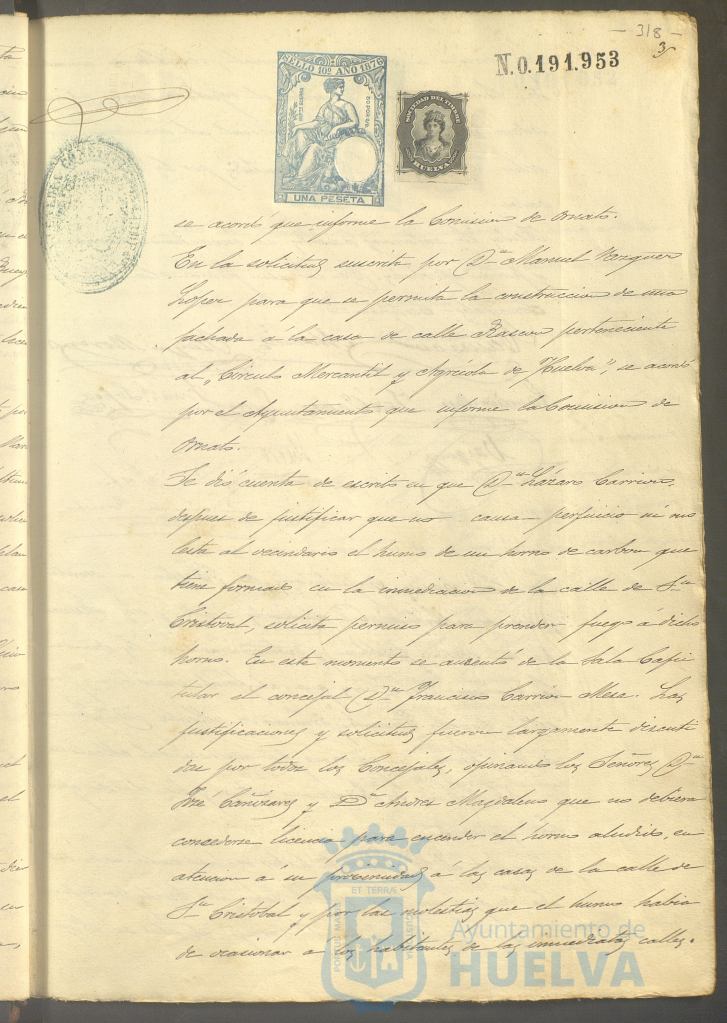 - 318 -
3
N. 0.191.953
SELLO 10º AÑO 1876
UNA PESETA
SOCIEDAD DEL TIMBRE
HUELVA
se acordó que informe la Comision de Ornato.
En la solicitud suscrita por Dn Manuel Vazquez
Lopez para que se permita la construccion de una
fachada á la casa de calle Rascon perteneciente
al „Circulo Mercantil y Agrícola de Huelva", se acordó
por el Ayuntamiento que informe la Comision de
Ornato.
Se dió cuenta de escrito en que Dn Lázaro Carrion,
despues de justificar que no causa perjuicio ni mo
lestia al vecindario el humo de un horno de carbon que
tiene formado en la inmediacion de la calle de Sn
Cristoval, solicita permiso para prender fuego á dicho
horno. En este momento se ausentó de la Sala Capi
tular el concejal Dn Francisco Carrion Mesa. Las
justificaciones y solicitud fueron largamente discuti
das por todos los Concejales, opinando los Señores Dn
José Cañizares y Dn Andres Magdaleno que no debiera
concederse licencia para encender el horno aludido, en
atencion á su proximidad á las casas de la calle de
Sn Cristobal y por las molestias que el humo habia
de ocasionar á los habitantes de las inmediatas calles.
ET TERRÆ
PORTUS MARIS
CUSTODIA
Ayuntamiento de
HUELVA